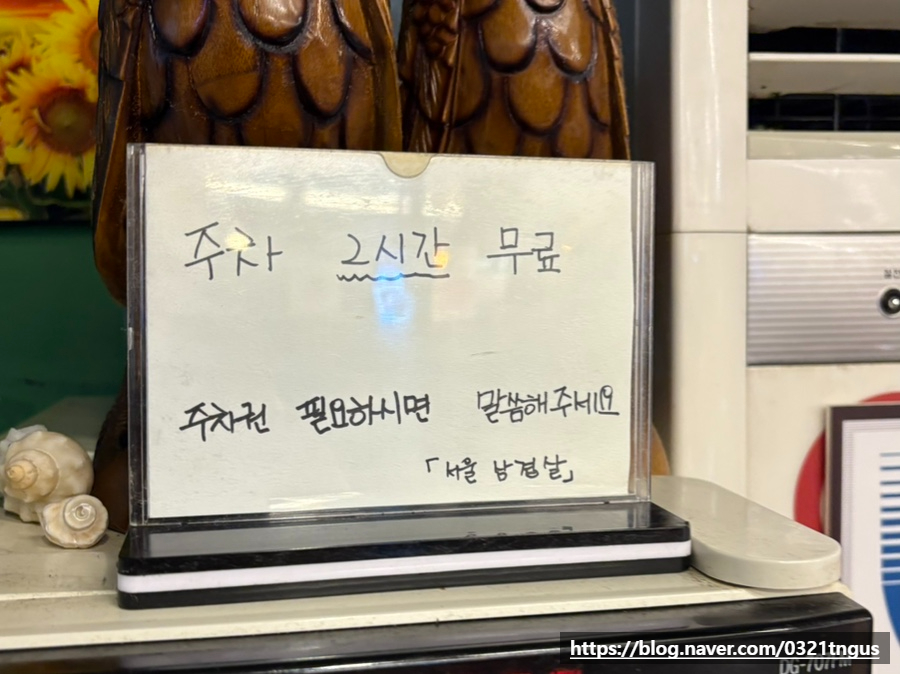 주차 2시간 무료
주차권 필요하시면 말씀해주세요
「서울 남겹살」
https://blog.naver.com/0321tngus